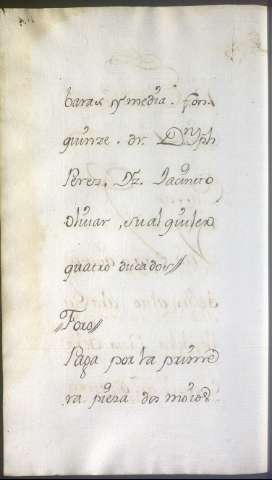 baras y media. fon
quinze. dr. Dn Jph
Perez. Dz. Jacinto
oliuar, su alquiler
quatro ducados//
//Foro//
Paga por la prime
ra pieza dos moios